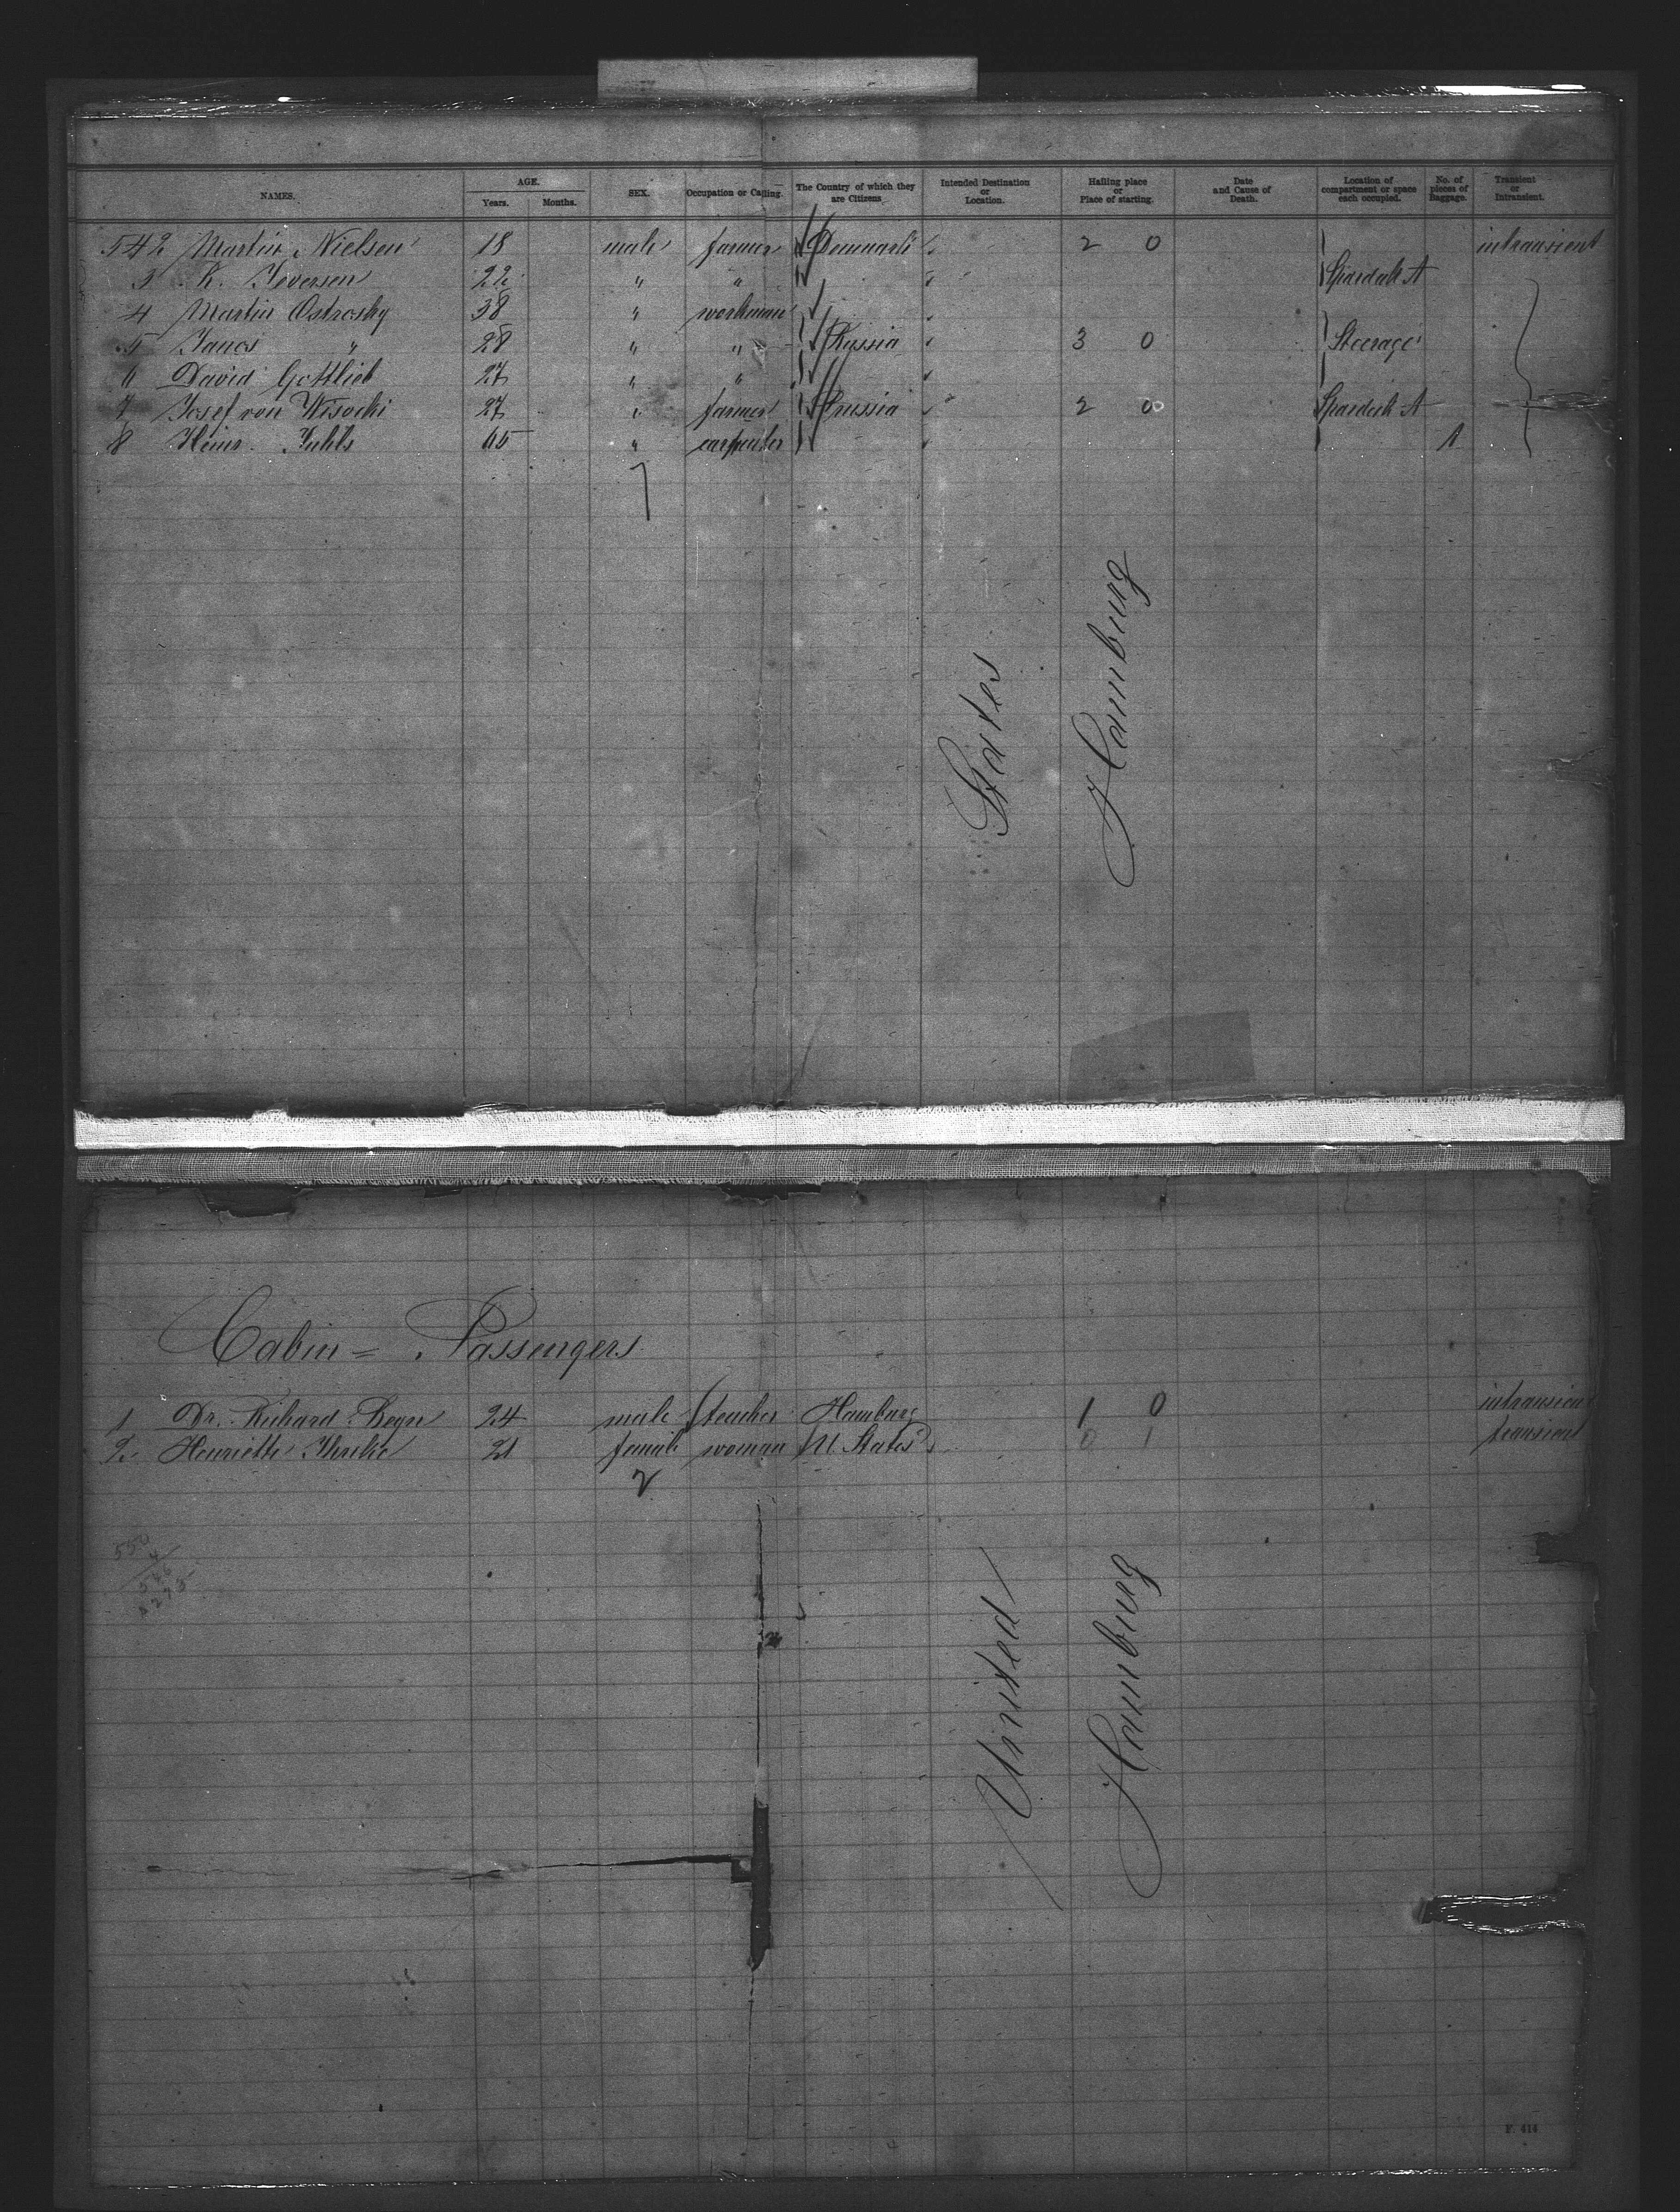 NAMES. AGE. Years. Months. SEX. Occupation or Calling. The Country of which they are Citizens Intended Destination or Location. Hailing place or Place of starting. Date and Cause of Death. Location of compartment or space each occupied. No. of pieces of Baggage. Transient or Intransient.
542 Martin Nielsen 18 male farmer Denmark 2 0 intransient
3 K. Iversen 22 " " Spardeck A
4 Martin Ostrosky 38 " workman
5 " 28 " " Russia 3 0 Steerage
6 David Gottlieb 27 " "
7 Josef von Wisocki 27 " farmer Prussia 2 0 Spardeck A
8 Heinr. 65 " carpenter 1
7
States
Hamburg
Cabin = Passengers
1 Dr. Richard 24 male teacher Hamburg 1 0 intransient
2 Henriette 21 female woman U. States 0 1 transient
2
550
4
546
United
Hamburg
F. 414